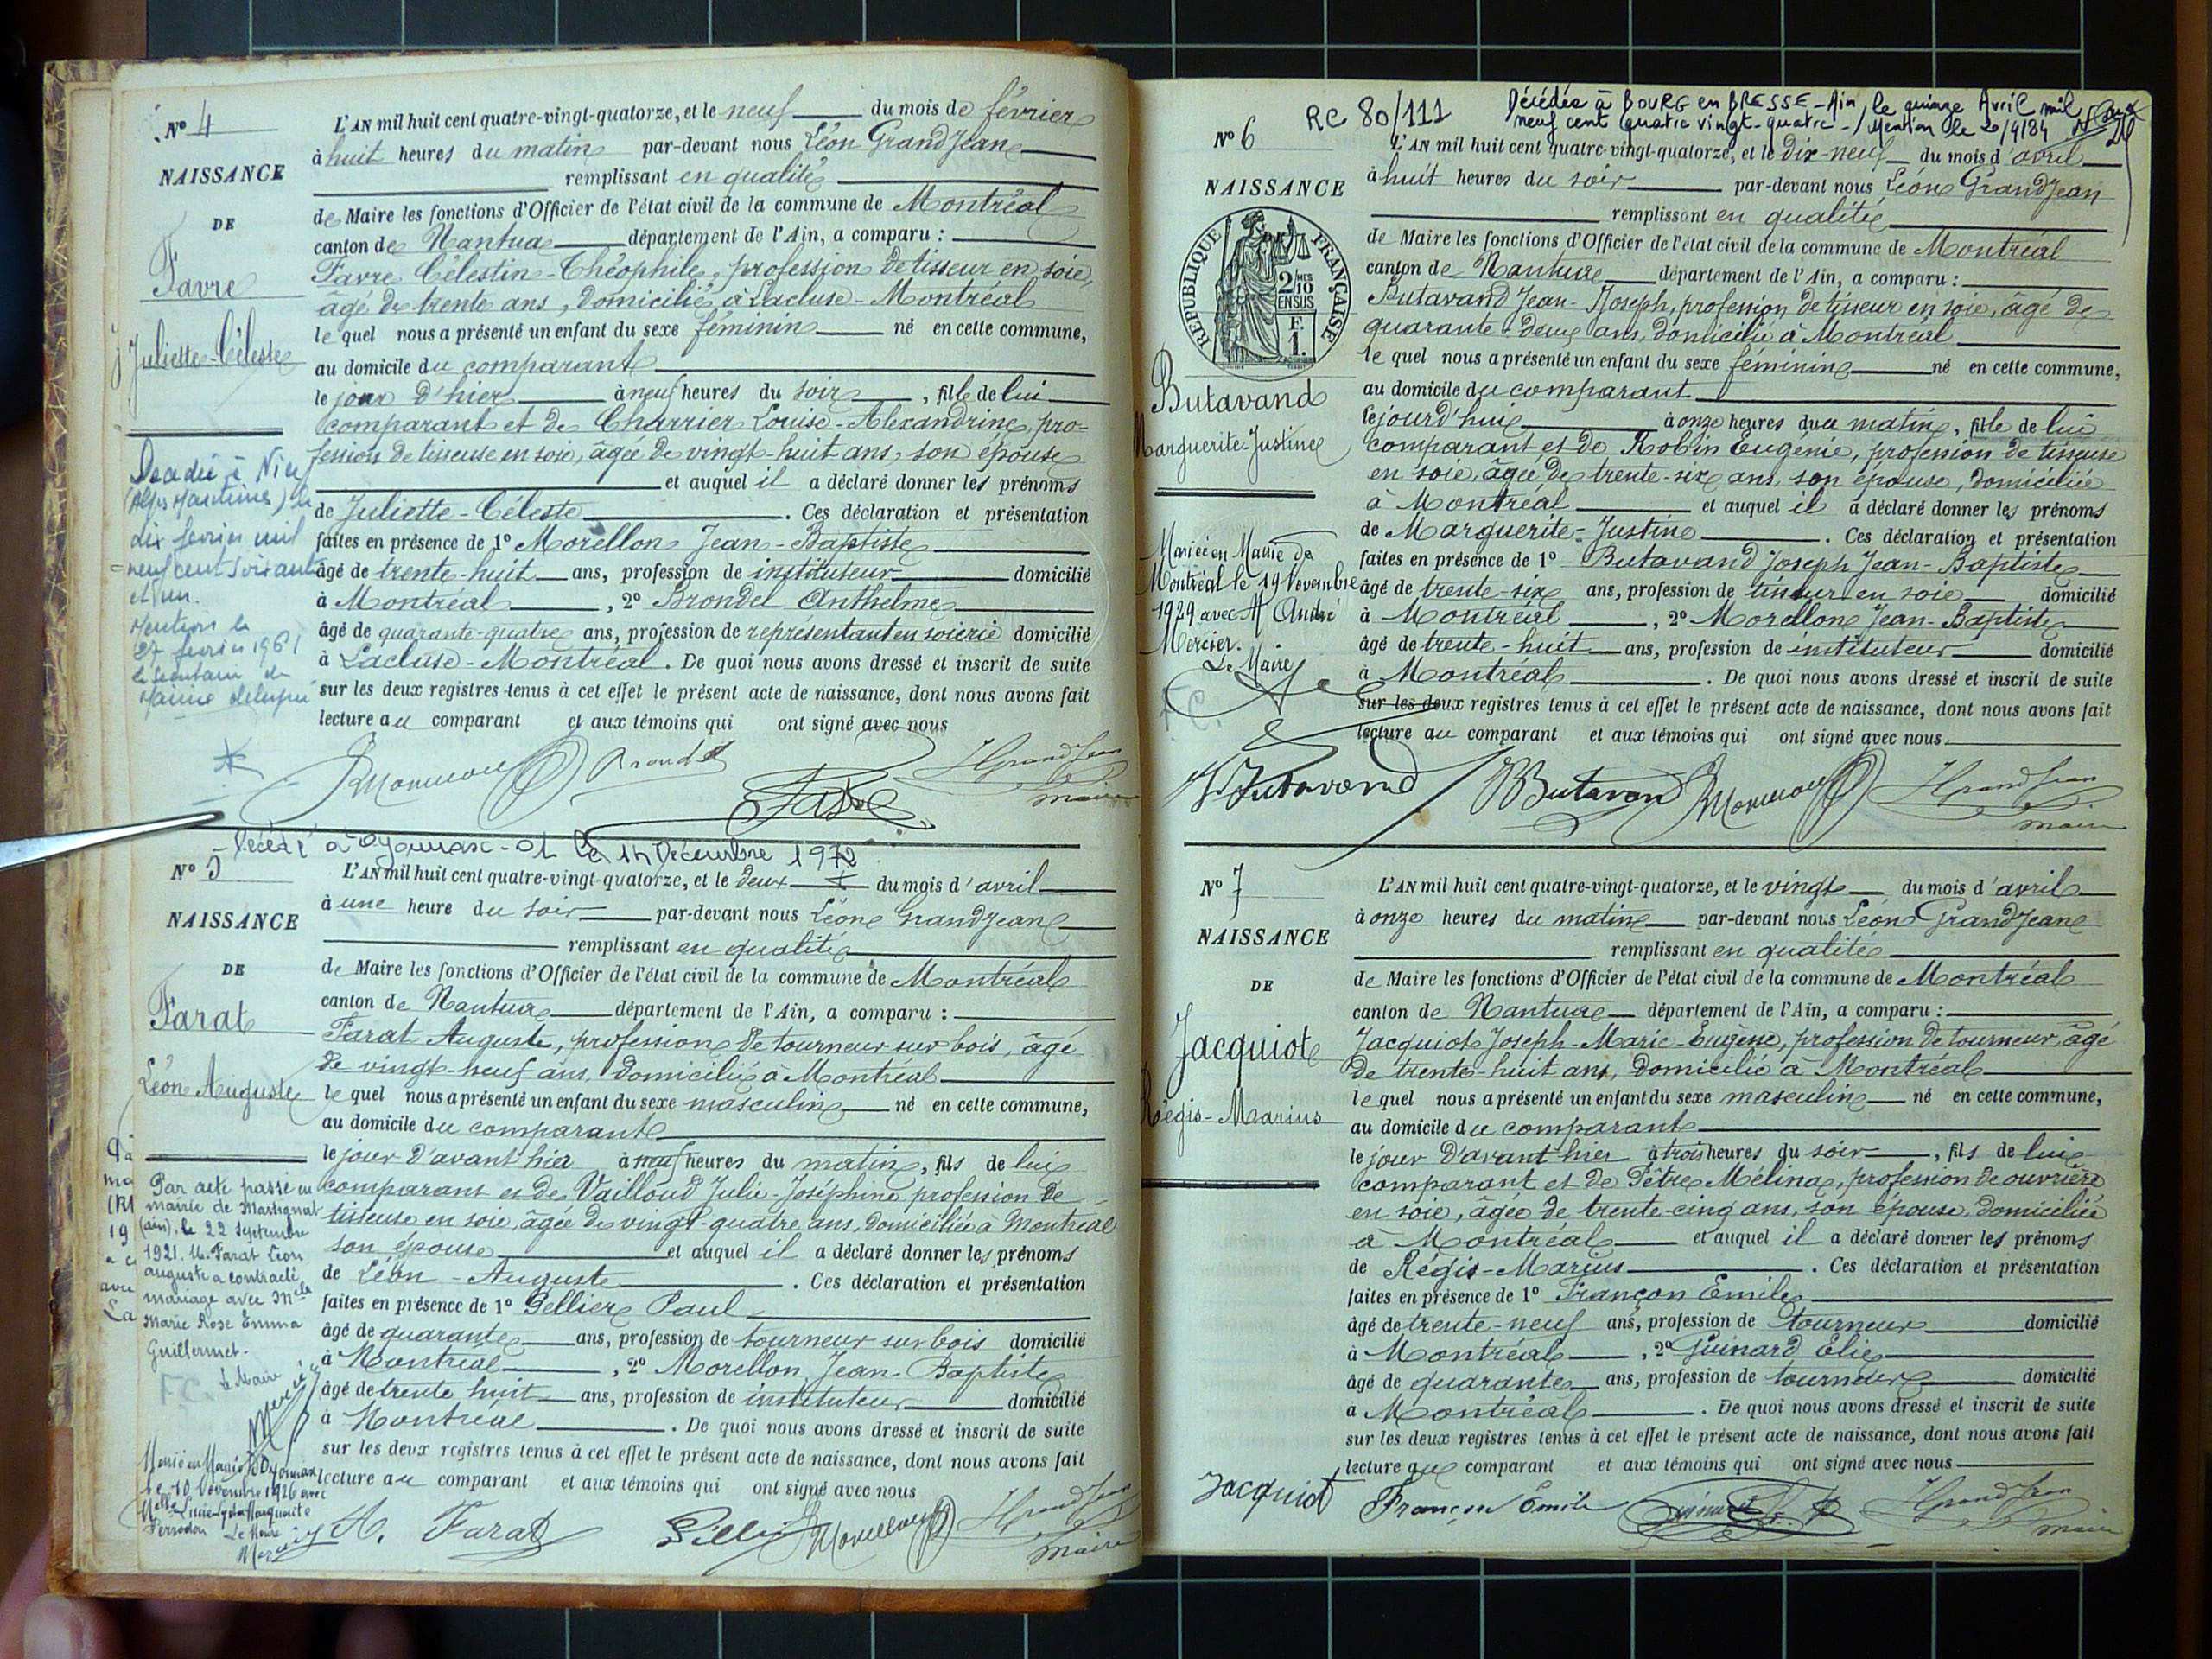 N° 4
NAISSANCE
DE
Favre
Juliette-Céleste
L'AN mil huit cent quatre-vingt-quatorze, et le neuf du mois de février
à huit heures du matin par-devant nous Léon Grandjean
remplissant en qualité
de Maire les fonctions d'Officier de l'état civil de la commune de Montréal
canton de Nantua département de l'Ain, a comparu :
Favre Célestin-Théophile, profession de tisseur en soie,
âgé de trente ans, domicilié à Lacluse-Montréal
le quel nous a présenté un enfant du sexe féminin né en cette commune,
au domicile du comparant
le jour d'hier à neuf heures du soir, fille de lui
comparant et de Charrier Louise-Alexandrine, pro-
fession de tisseuse en soie, âgée de vingt-huit ans, son épouse
et auquel il a déclaré donner les prénoms
de Juliette-Céleste. Ces déclaration et présentation
faites en présence de 1° Morellon Jean-Baptiste
âgé de trente-huit ans, profession de instituteur domicilié
à Montréal, 2° Brondel Anthelme
âgé de quarante-quatre ans, profession de représentant en soierie domicilié
à Lacluse-Montréal. De quoi nous avons dressé et inscrit de suite
sur les deux registres tenus à cet effet le présent acte de naissance, dont nous avons fait
lecture au comparant et aux témoins qui ont signé avec nous
Decédée à Nice
(Alpes Maritimes) le
dix février mil
neuf cent soixante
et un.
Mention le
27 février 1961
le secrétaire de
Mairie délégué
Grandjean
maire
Décédé à Oyonnax-01 le 14 Décembre 1972
N° 5
NAISSANCE
DE
Farat
Léon Auguste
L'AN mil huit cent quatre-vingt-quatorze, et le deux du mois d'avril
à une heure du soir par-devant nous Léon Grandjean
remplissant en qualité
de Maire les fonctions d'Officier de l'état civil de la commune de Montréal
canton de Nantua département de l'Ain, a comparu :
Farat Auguste, profession de tourneur sur bois, âgé
de vingt-neuf ans, domicilié à Montréal
le quel nous a présenté un enfant du sexe masculin né en cette commune,
au domicile du comparant
le jour d'avant hier à neuf heures du matin, fils de lui
comparant et de Vailloud Julie-Joséphine profession de
tisseuse en soie, âgée de vingt-quatre ans, domiciliée à Montréal
son épouse et auquel il a déclaré donner les prénoms
de Léon-Auguste. Ces déclaration et présentation
faites en présence de 1° Gellier Paul
âgé de quarante ans, profession de tourneur sur bois domicilié
à Montréal, 2° Morellon Jean-Baptiste
âgé de trente huit ans, profession de instituteur domicilié
à Montréal. De quoi nous avons dressé et inscrit de suite
sur les deux registres tenus à cet effet le présent acte de naissance, dont nous avons fait
lecture au comparant et aux témoins qui ont signé avec nous
Par acte passé en
mairie de Martignat
(Ain), le 22 Septembre
1921. M. Farat Léon
auguste a contracté
mariage avec Melle
Marie Rose Emma
Guillermet.
Le Maire
Mercier
Marié en Mairie d'Oyonnax
le 10 Novembre 1926 avec
Melle Marguerite
Le Maire
Mercier
A. Farat
Grandjean
maire
RC 80/111
Décédée à BOURG en BRESSE-Ain, le quinze Avril mil
neuf cent quatre vingt-quatre-/ Mention le 20/4/84
N° 6
NAISSANCE
RÉPUBLIQUE FRANÇAISE
2/10 EN SUS
F. 1.
Butavand
Marguerite-Justine
L'AN mil huit cent quatre-vingt-quatorze, et le dix-neuf du mois d'avril
à huit heures du soir par-devant nous Léon Grandjean
remplissant en qualité
de Maire les fonctions d'Officier de l'état civil de la commune de Montréal
canton de Nantua département de l'Ain, a comparu :
Butavand Jean-Joseph, profession de tisseur en soie, âgé de
quarante-deux ans, domicilié à Montréal
le quel nous a présenté un enfant du sexe féminin né en cette commune,
au domicile du comparant
le jourd'hui à onze heures du matin, fille de lui
comparant et de Robin Eugénie, profession de tisseuse
en soie, âgée de trente-six ans, son épouse, domiciliée
à Montréal et auquel il a déclaré donner les prénoms
de Marguerite-Justine. Ces déclaration et présentation
faites en présence de 1° Butavand Joseph Jean-Baptiste
âgé de trente-six ans, profession de tisseur en soie domicilié
à Montréal, 2° Morellon Jean-Baptiste
âgé de trente-huit ans, profession de instituteur domicilié
à Montréal. De quoi nous avons dressé et inscrit de suite
sur les deux registres tenus à cet effet le présent acte de naissance, dont nous avons fait
lecture au comparant et aux témoins qui ont signé avec nous
Mariée en Mairie de
Montréal le 19 Novembre
1929 avec M. André
Mercier.
Le Maire
Butavand
Butavand
Grandjean
maire
N° 7
NAISSANCE
DE
Jacquiot
Régis-Marius
L'AN mil huit cent quatre-vingt-quatorze, et le vingt du mois d'avril
à onze heures du matin par-devant nous Léon Grandjean
remplissant en qualité
de Maire les fonctions d'Officier de l'état civil de la commune de Montréal
canton de Nantua département de l'Ain, a comparu :
Jacquiot Joseph-Marie-Eugène, profession de tourneur, âgé
de trente-huit ans, domicilié à Montréal
le quel nous a présenté un enfant du sexe masculin né en cette commune,
au domicile du comparant
le jour d'avant hier à trois heures du soir, fils de lui
comparant et de Pêtre Mélina, profession de ouvrière
en soie, âgée de trente-cinq ans, son épouse, domiciliée
à Montréal et auquel il a déclaré donner les prénoms
de Régis-Marius. Ces déclaration et présentation
faites en présence de 1° Françon Emile
âgé de trente-neuf ans, profession de tourneur domicilié
à Montréal, 2° Guinard Elie
âgé de quarante ans, profession de tourneur domicilié
à Montréal. De quoi nous avons dressé et inscrit de suite
sur les deux registres tenus à cet effet le présent acte de naissance, dont nous avons fait
lecture au comparant et aux témoins qui ont signé avec nous
Jacquiot
Françon Emile
Grandjean
maire